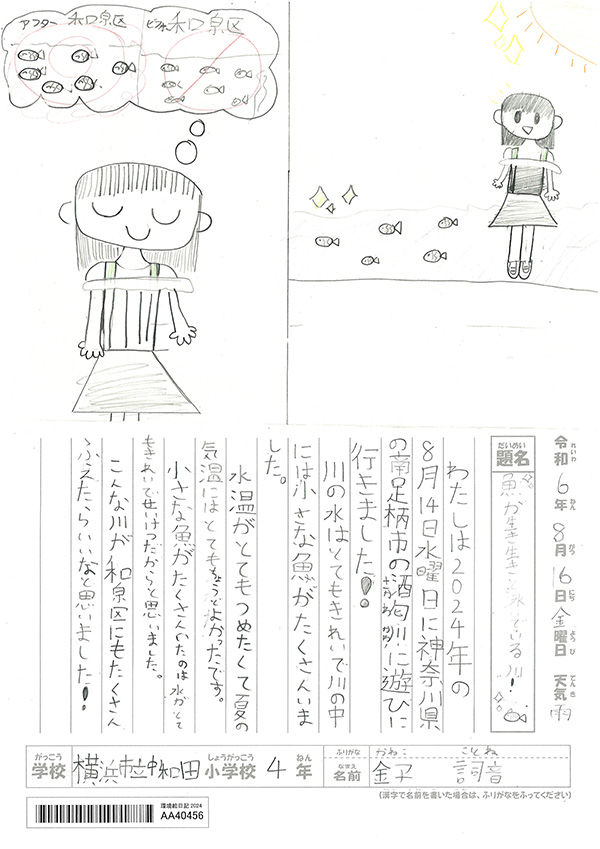 アフター 和泉区
ビフォー 和泉区
令和6年8月16日金曜日 天気雨
れいわ ねん がつ にち ようび てんき
だいめい
題名 魚が生き生きと泳いでいる川!
わたしは2024年の
8月14日水曜日に神奈川県
の南足柄市の酒匂川に遊びに
行きました!
川の水はとてもきれいで川の中
には小さな魚がたくさんいま
した。
水温がとてもつめたくて夏の
気温にはとてもちょうどよかったです。
小さな魚がたくさんいたのは水がとて
もきれいでせいけつだからと思いました。
こんな川が和泉区にもたくさん
ふえたらいいなと思いました!
がっこう しょうがっこう ねん
学校 横浜市立中和田小学校 4年
ふりがな かねこ ことね
なまえ
名前 金子 詞音
(漢字で名前を書いた場合は、ふりがなをふってください)
環境絵日記 2024
AA40456